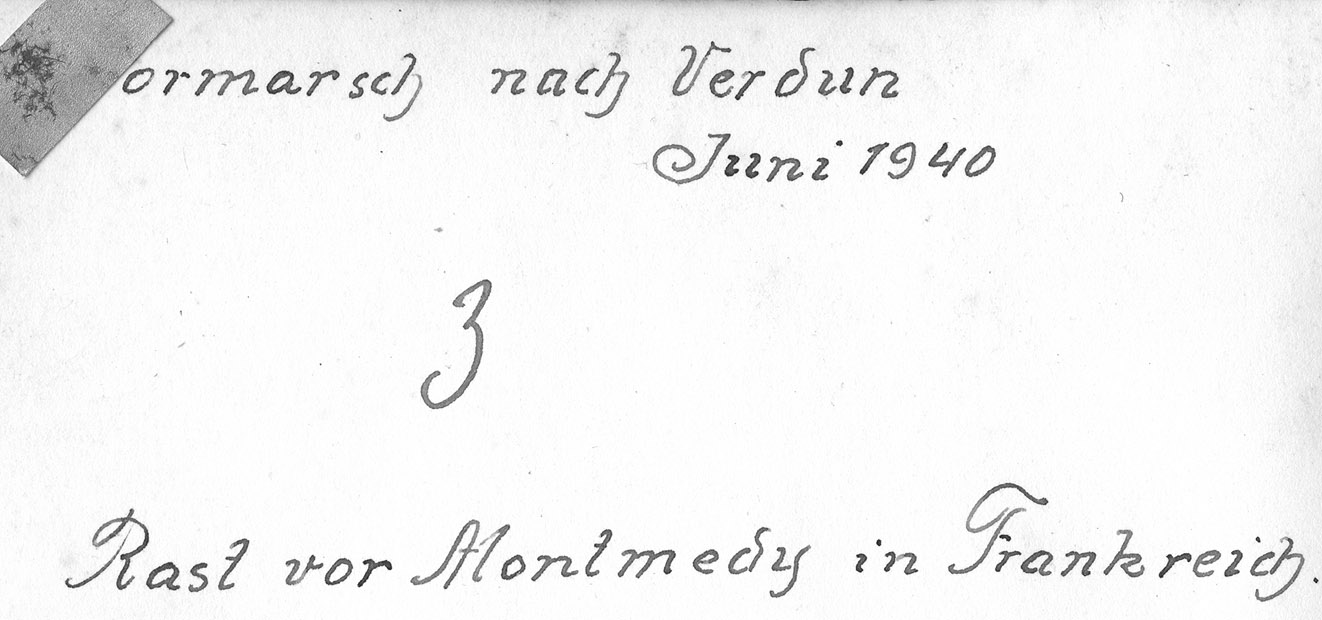 ormarsch nach Verdun
Juni 1940
3
Rast vor Montmedy in Frankreich.